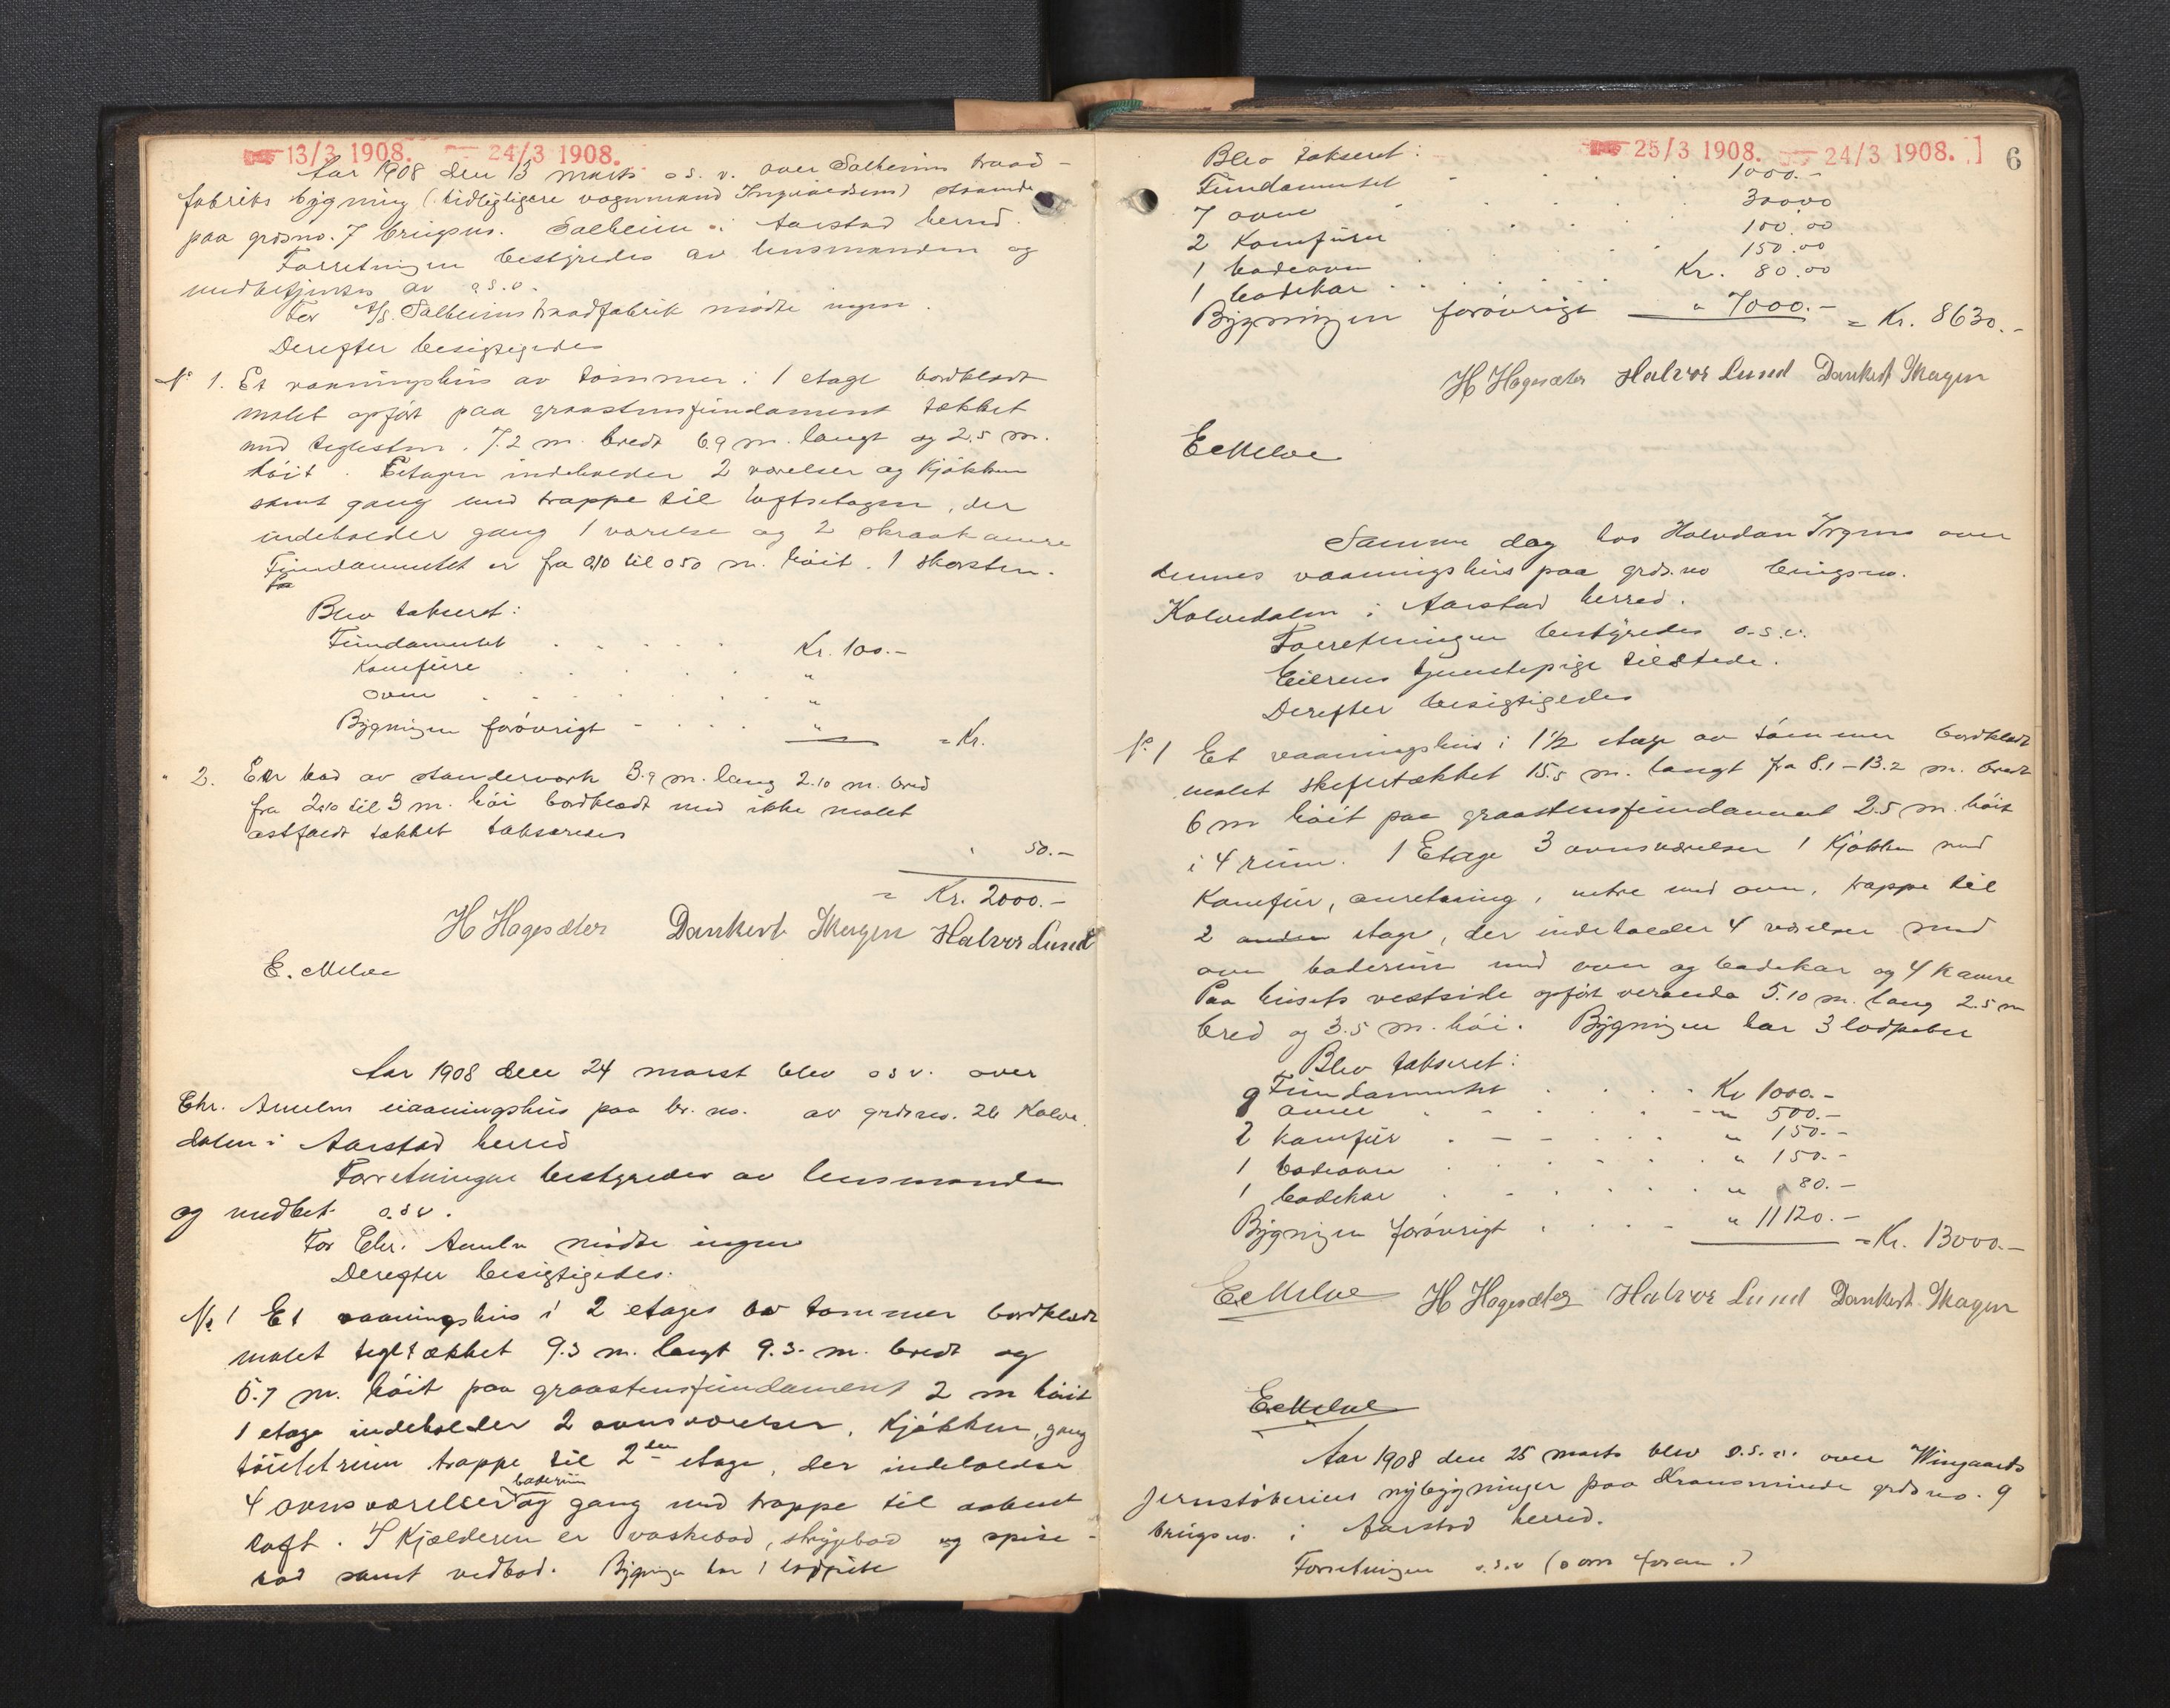 13/3 1908. 24/3 1908.
Aar 1908 den 13 marts o s. v. over Solheims traad-
fabriks bygning (tidligere vognmand Ingvaldsens) staaende
paa grdsno. 7 brugsno. Solheim i Aarstad herred.
Forretningen bestyredes av lensmanden og
medbetjentes av o s. v.
For A/S. Solheims traadfabrik mødte ingen.
Derefter besigtigedes
No 1. Et vaaningshus av tømmer i 1 etage bordklædt
malet opført paa graastensfundament tækket
med teglsten. 7.2 m. bredt 6.9 m. langt og 2.5 m.
høit. Etagen indeholder 2 værelser og kjøkken
samt gang med trappe til loftsetagen, der
indeholder gang 1 værelse og 2 skraakamre
Fundamentet er fra 0,10 til 0 50 m. høit. 1 skorsten.
Blev takseret:
Fundamentet . . . . . Kr. 100.-
Komfure . . . . . "
Ovne . . . . . . "
Bygningen forøvrigt - . . . " = Kr.
" 2. En bod av standerverk 3.9 m. lang 2.10 m. bred
fra 2,10 til 3 m. høi bordklædt men ikke malet
astfaedt tækket takseredes
" 50.-
= Kr. 2000.-
H Hagesæter Dankert Skagen Halvor Lund
E. Melve
Aar 1908 den 24 marst blev o s v. over
Chr. Amelns vaaningshus paa br. no. av grdsno. 26 Kalve-
dalen i Aarstad herred
Forretningen bestyredes av lensmanden
og medbet. o. s v.
For Chr. Ameln mødte ingen
Derefter besigtigedes.
No 1 Et vaaningshus i 2 etages av tømmer bordklædt
malet tegltækket 9.3 m. langt 9.3. m. bredt og
5.7 m. høit paa graastensfundament 2 m høit
1 etage indeholder 2 ovnsværelser, kjøkken, gang
toiletrum trappe til 2den etage, der indeholder
baderum
4 ovnsværelser og gang med trappe til aabent
loft. I Kjælderen er vaskebod, strygebod og spise-
bod samt vedbod. Bygningen har 1 lodpibe
25/3 1908. 24/3 1908. ] 6
Blev takseret:
Fundamentet - . . . 1000.-
7 ovne . . . . 300 00
2 Komfurer . . . . 100.00
1 badeovn . . . . 150.00
1 badekar . . . . . . Kr. 80.00
Bygningen forøvrigt " 7000.- = Kr. 8630.-
H Hagesæter Halvor Lund Dankert Skagen
E Melve
Samme dag hos Halvdan Irgens over
dennes vaaningshus paa grds.no brugsno.
Kalvedalen i Aarstad herred.
Forretningen bestyredes o. s. v.
Eierens tjenestepige tilstede.
Derefter besigtigedes
No 1 Et vaaningshus i 1 1/2 etage av tømmer bordklædt
malet skifertækket 15.5 m. langt fra 8.1 - 13.2 m. bredt
6 m høit paa graastensfundament 2.5 m. høit
i 4 rum. 1 Etage 3 ovnsværelser 1 Kjøkken med
Komfur, anretning, entre med ovn, trappe til
2 anden etage, der indeholder 4 værelser med
ovn baderum med ovn og badekar og 4 kamre
Paa husets vestside opført veranda 5.10 m. lang 2.5 m
bred og 3.5 m. høi. Bygningen har 3 lodpiber
Blev takseret:
Fundamentet . . . . Kr 1000.-
9 ovne . - - . . - " 500.-
2 komfur . - - . . . " 150.-
1 badeovn . . . - . . " 150.-
1 badekar . - . . . . " 80.-
Bygningen forøvrigt . . . - " 11120.- = Kr. 13000.-
E Melve H Hagesæter Halvor Lund Dankert Skagen
E Melve
Aar 1908 den 25 marts blev o. s. v. over Wingaards
jernstøberies nybygninger paa Kransminde grdsno. 9
brugsno. i Aarstad herred.
Forretningen o. s. v (som foran.)